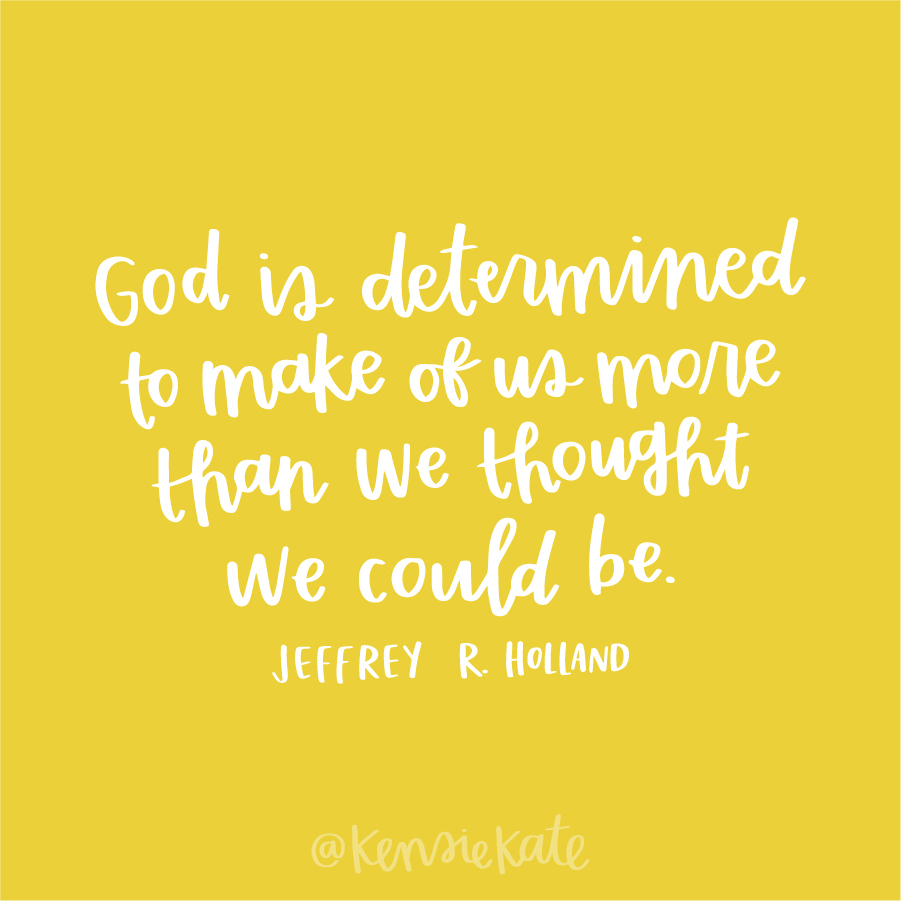 God is determined
to make of us more
than we thought
we could be.
JEFFREY R. HOLLAND
@kensiekate